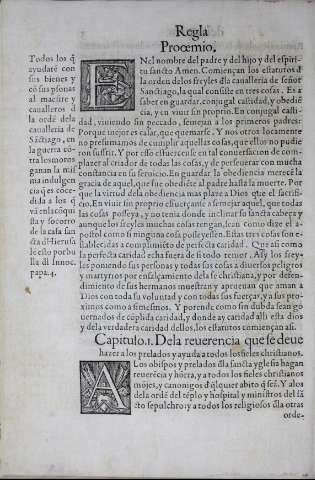 Regla
Proemio.
Todos los q̃
ayudaré con
sus bienes y
cõ sus psonas
al maestre y
caualleros ð
la ordē dela
caualleria de
Sãctiago, en
la guerra cõ-
tra los moros
ganan la mis
ma indulgen
cia q̃ es cõce-
dida a los q̃
vã en la cõqui
sta y socorro
de la casa san
cta ð Hierusa
lẽ esto por bu
lla ðl Innoc.
papa. 4.
EN el nombre del padre y del hijo y del espiri-
tu sancto Amen. Comiençan los estatutos ð
la orden de los freyles dla caualleria de señor
Sanctiago, la qual consiste en tres cosas. Es a
saber en guardar, conjugal castidad, y obediē
cia, y en viuir sin proprio. En conjugal casti-
dad, viuiendo sin peccado, semejan a los primeros padres:
Porque mejor es casar, que quemarse. Y nos otros locamente
no presumamos de cumplir aquellas cosas, que ellos no pudie
ron suffrir. Y por esto esfuercense en tal conuersacion de com-
plazer al criador de todas las cosas, y de perseuerar con mucha
constancia en su seruicio. En guardar la obediencia merecē la
gracia de aquel, que fue obediēte al padre hasta la muerte. Por
que la virtud dela obediencia mas plaze a Dios que el sacrifi-
cio. En viuir sin proprio esfuerçanse a semejar aquel, que todas
las cosas posseya, y no tenia donde inclinar su sancta cabeça y
aunque los freyles muchas cosas tengan, sean como dize el a-
postol como si ninguna cosa posseyessen. Estas tres cosas son e-
stablecidas a complimiēto de perfecta caridad. Que asi como
la perfecta caridad echa fuera de si todo temor. Assi los frey-
les poniendo sus personas y todas sus cosas a diuersos peligros
y martyrios por ensalçamiento dela fe christiana, y por defen-
dimiento de sus hermanos muestran y aprueuan que aman a
Dios con toda su voluntad y con todas sus fuerças, y a sus pro-
ximos como a si mesmos. Y porende como sin dubda sean go
uernados de cũplida caridad, y donde ay caridad alli esta dios
y dela verdadera caridad dellos, los estatutos comiençan assi.
Capitulo. I. Dela reuerencia que se deue
hazer a los prelados y ayuda a todos los fieles christianos.
A Los obispos y prelados dla sancta yglesia hagan
reuerēcia y hõrra, y a todos los fieles christianos
mõjes, y canonigos d qlquier abito q̃ seã. Y a los
dela ordē del tẽplo y hospital y ministros del sã
cto sepulchro: y a todos los religiosos dla otras
orde-